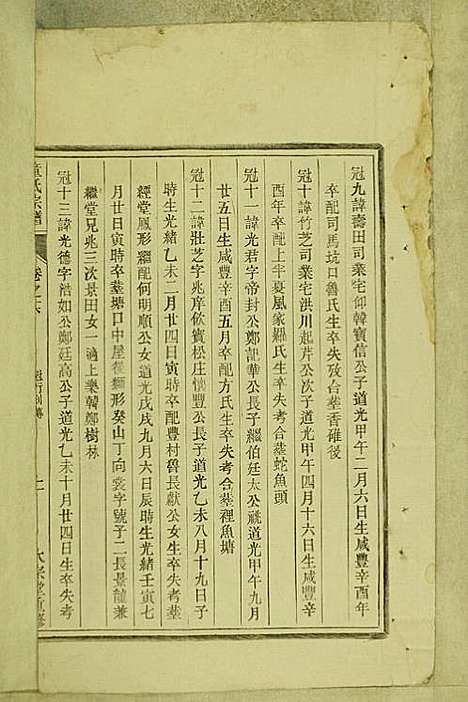 冠九諱壽田司業宅仰韓寶信公子道光甲午二月六日生咸豐辛酉年
卒配司馬坑口魯氏生卒失攷合墓香碓後
冠十諱竹芝司業宅洪川起芹公次子道光甲午四月十六日生咸豐辛
酉年卒配上半夏風家縣氏生卒失考合墓蛇魚頭
冠十一諱光君字帝封公鄭記華公長子繼伯廷太公祧道光甲午九月
廿五日生咸豐辛酉五月卒配方氏生卒失考合墓裡魚塘
冠十二諱壯芝字兆庠攸賓松庄懷豐公長子道光乙未八月十九日子
時生光緒乙未二月廿四日寅時卒配豐村魯長獻公女生卒失考墓
經堂鳳形繼配何明順公女道光戊戌九月六日辰時生光緒壬寅七
月廿日寅時卒墓塘口中屋後獅形癸山丁向裳字號子二長景龍兼
繼堂兄兆三次景田女一適上樂韓鄭樹林
冠十三諱光德字浩如公鄭廷高公子道光乙未十月廿四日生卒失考
宗譜
卷之六